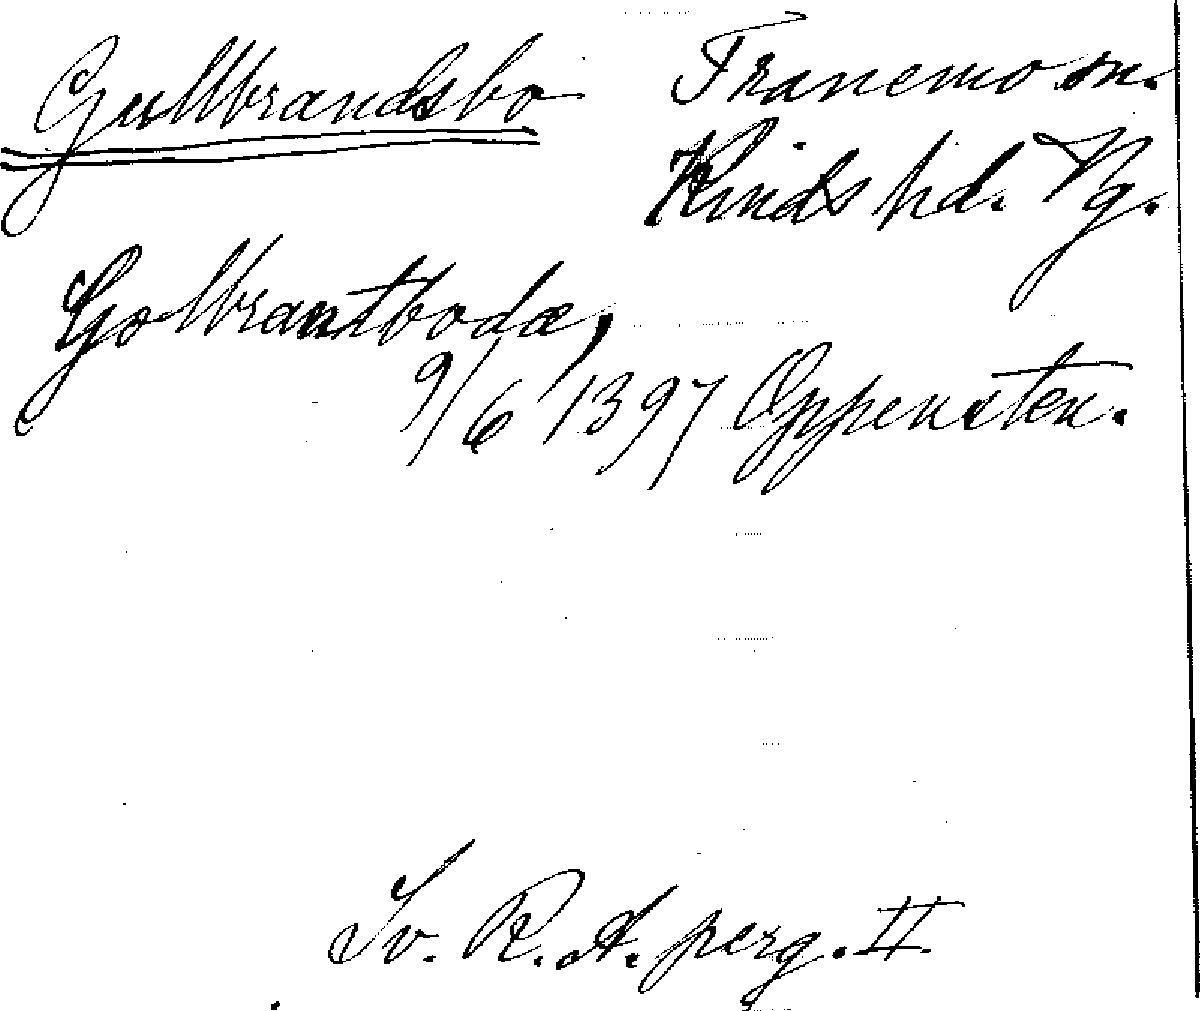 Gullbrandsbo Tranemo sn.
Kinds hd. Vg.
Golbrantboda,
9/6 1397 Oppensten.
Sv. R. A. perg. II.